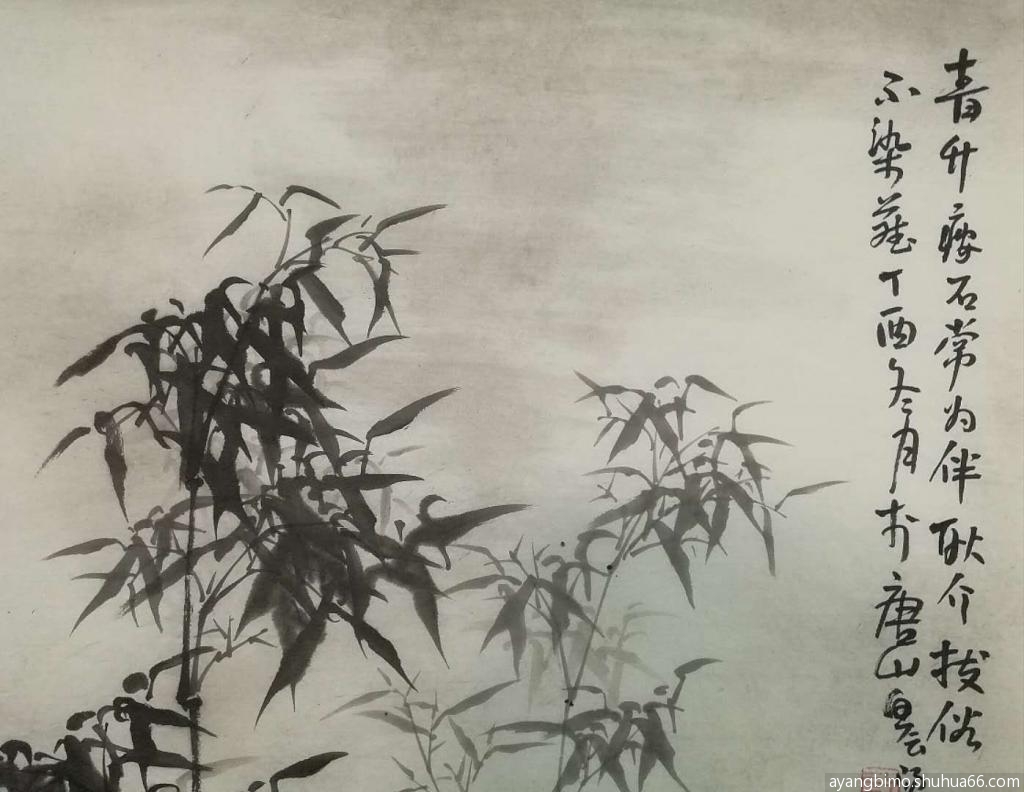 青竹瘦石常为伴耿介拔俗
不染丁酉冬月于唐山
ayangbimo.shuhua66.com